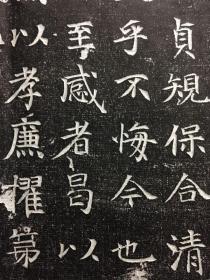 貞規保合清
乎不悔今也
至感者曷以
以孝廉擢第